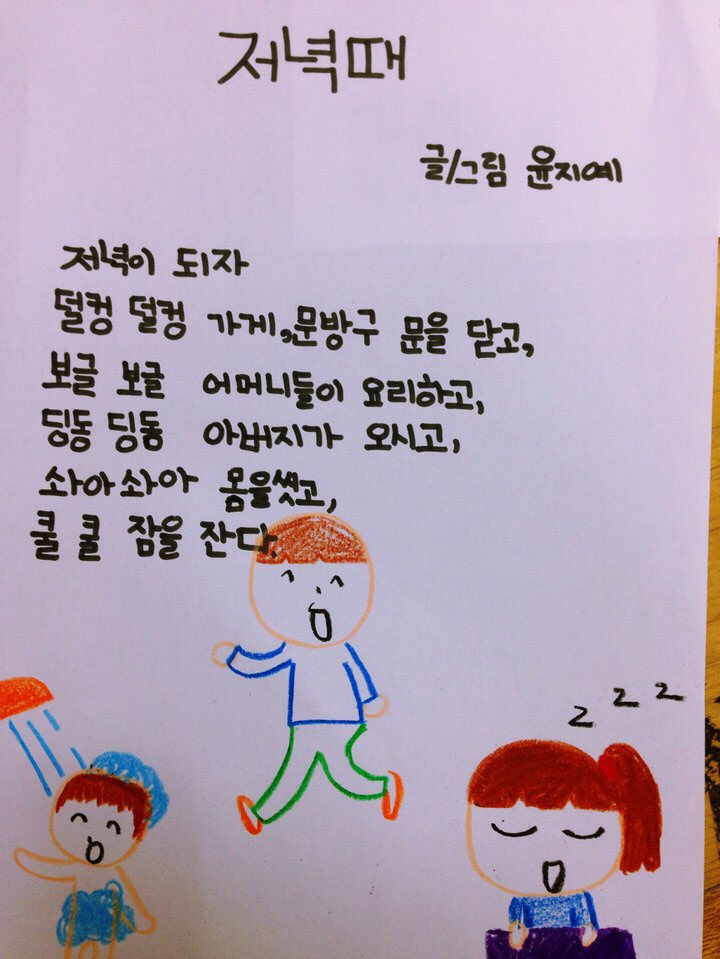 저녁때
글/그림 윤지예
저녁이 되자
덜컹 덜컹 가게,문방구 문을 닫고,
보글 보글 어머니들이 요리하고,
딩동 딩동 아버지가 오시고,
솨아솨아 몸을씻고,
쿨 쿨 잠을 잔다.
z z z